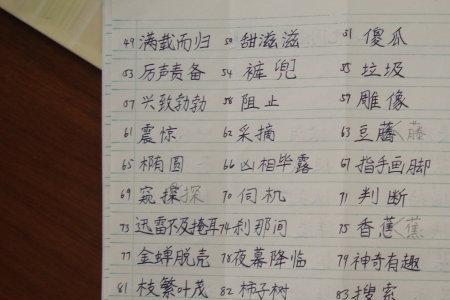 49 满载而归 50 甜滋滋 51 傻瓜
53 厉声责备 54 裤兜 55 垃圾
57 兴致勃勃 58 阻止 59 雕像
61 震惊 62 采摘 63 豆藤<藤
65 椭圆 66 凶相毕露 67 指手画脚
69 窥探探 70 伺机 71 判断
73 迅雷不及掩耳 74 刹那间 75 香蕉<蕉
77 金蝉脱壳 78 夜幕降临 79 神奇有趣
81 枝繁叶茂 82 柿子树 83 搜索